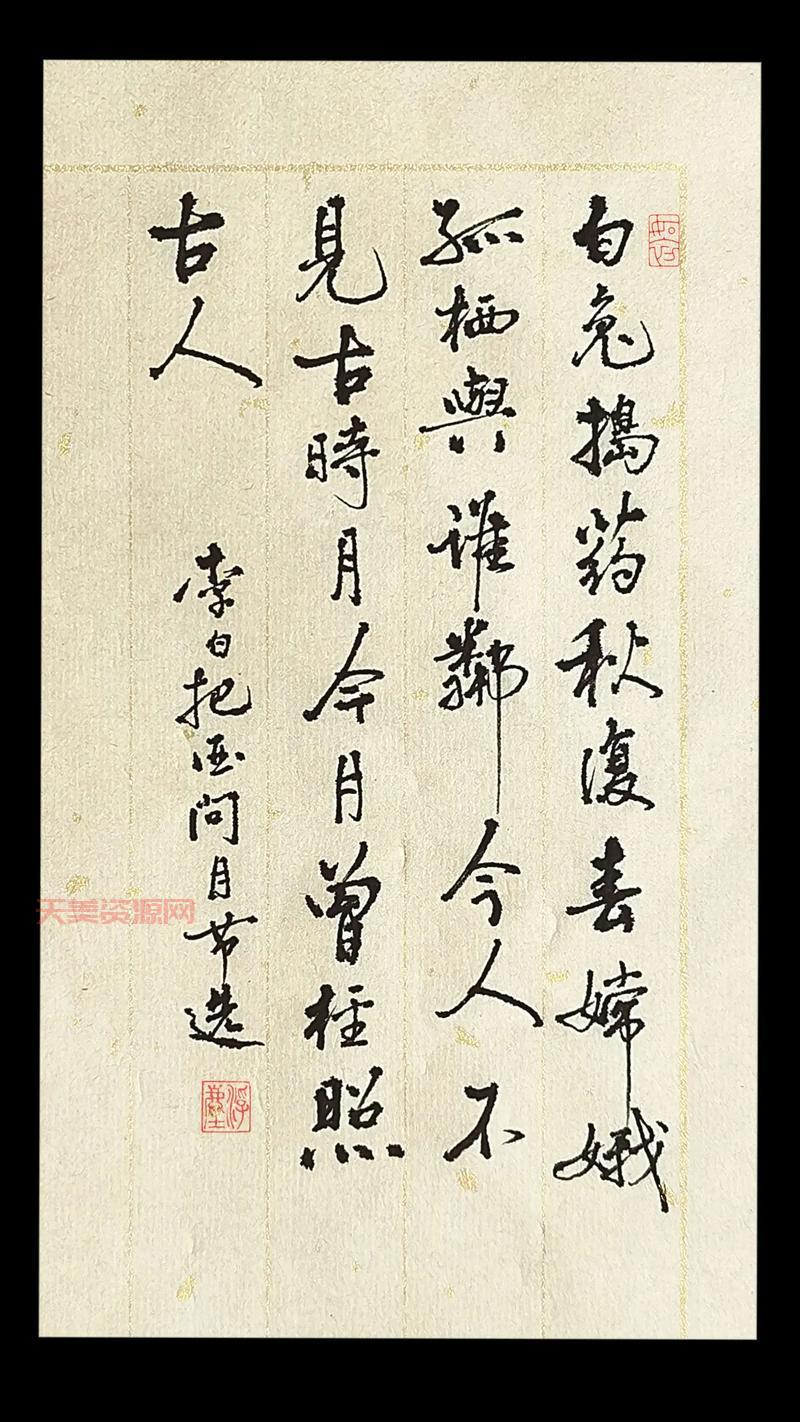 白兔搗葯秋復春嫦娥
孤栖與誰鄰今人不
見古時月今月曾經照
古人
李白把酒問月节選
浮塵
天美资源网